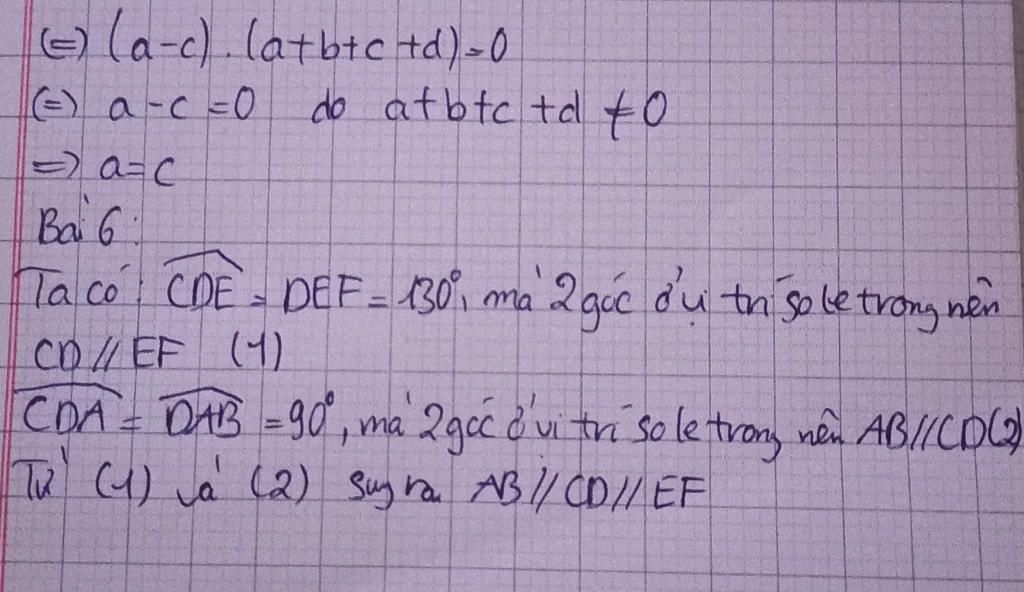 (=) (a-c).(a+b+c+d)=0
(=) a-c=0 do a+b+c+d≠0
=) a=c
Bài 6:
Ta có: CDE = DEF = 130°, mà 2 góc ở vị trí so le trong nên
CD//EF (1)
CDA = DAB = 90°, mà 2 góc ở vị trí so le trong nên AB//CD(2)
Từ (1) và (2) suy ra AB//CD//EF